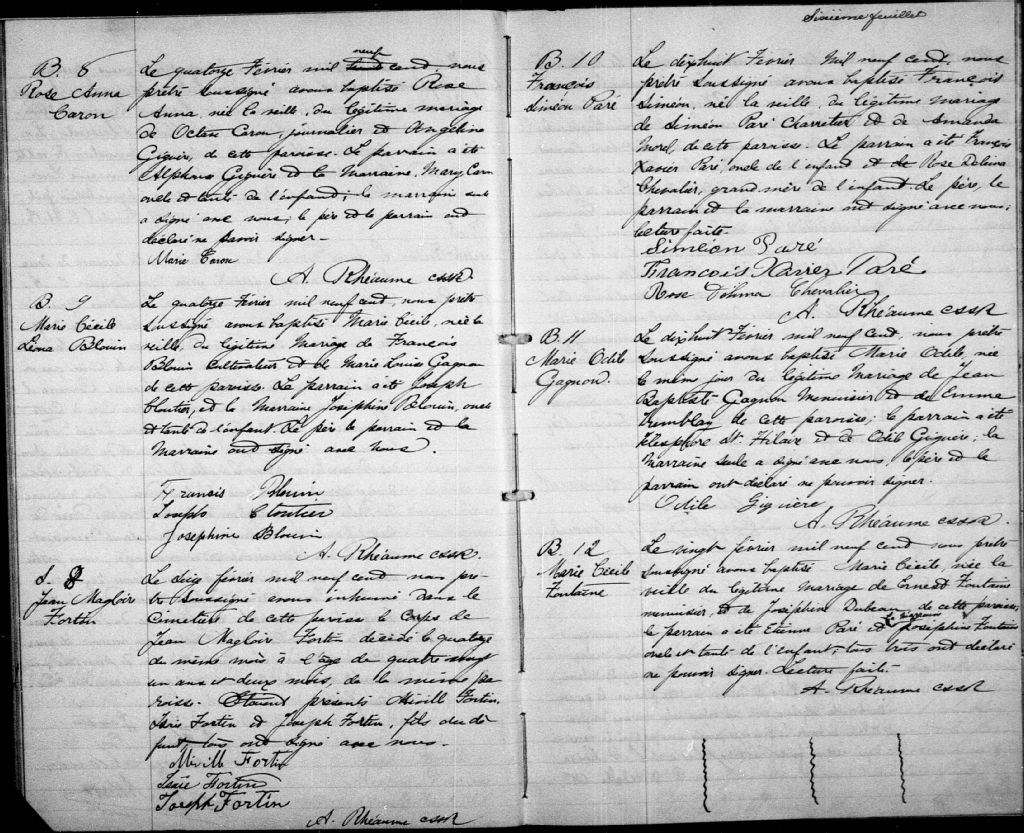 Sixième feuillet
B. 8
Rose Anna
Caron
Le quatorze Février mil neuf cent, nous
prêtre soussigné avons baptisé Rose
Anna, née la veille, du légitime mariage
de Octave Caron, journalier et Angélina
Giguère, de cette paroisse. Le parrain a été
Alphonse Giguère et la Marraine, Mary Caron
oncle et tante de l'enfant; la marraine seule
a signé avec nous; le père et le parrain ont
déclaré ne savoir signer.
Marie Caron
A. Rhéaume CSSR.
B. 9
Marie Cécile
Léona Blouin
Le quatorze Février mil neuf cent, nous prêtre
soussigné avons baptisé Marie Cécile, née la
veille, du légitime Mariage de François
Blouin Cultivateur et de Marie Louise Gagnon
de cette paroisse. Le parrain a été Joseph
Cloutier, et la Marraine Joséphine Blouin, oncle
et tante de l'enfant. Le père le parrain et la
Marraine ont signé avec nous.
Francis Blouin
Joseph Cloutier
Josephine Blouin
A. Rhéaume CSSR.
S.
Jean Magloire
Fortin
Le Seize février mil neuf cent nous prê-
tre Soussigné avons inhumé dans le
Cimetière de cette paroisse le Corps de
Jean Magloire Fortin décédé le quatorze
du même mois à l'âge de quatre vingt
un ans et deux mois, de la même pa
roisse. Etaient présents Fortin,
Fortin et Joseph Fortin, fils du dé
funt, tous ont signé avec nous.
Fortin
Isaïe Fortin
Joseph Fortin
A. Rhéaume CSSR
B. 10
François
Siméon Paré
Le dixhuit Février Mil neuf cent, nous
prêtre soussigné avons baptisé François
Siméon, né la veille, du légitime mariage
de Siméon Paré Charretier et de Amanda
Morel, de cette paroisse. Le parrain a été François
Xavier Paré, oncle de l'enfant et de Rose Delima
Chevalier, grand mère de l'enfant. Le père, le
parrain et la marraine ont signé avec nous;
lecture faite.
Siméon Paré
François Xavier Paré
Rose Délima Chevalier
A. Rhéaume CSSR
B. 11
Marie Odile
Gagnon.
Le dixhuit Février mil neuf cent, nous prêtre
Soussigné avons baptisé Marie Odile, née
le même jour du légitime Mariage de Jean
Baptiste Gagnon Menuisier et de Emma
Tremblay de cette paroisse; le parrain a été
Télesphore St Hilaire et de Odile Giguère; la
Marraine seule a signé avec nous, le père et le
parrain ont déclaré ne pouvoir signer.
Odile Giguère
A. Rhéaume CSSR.
B. 12
Marie Cécile
Fontaine
Le vingt février mil neuf cent nous prêtre
soussigné avons baptisé Marie Cécile, née la
veille du légitime mariage de Ernest Fontaine
menuisier, et de Joséphine Dubeau, de cette paroisse,
le parrain a été Etienne Paré et la marraine Joséphine Fontaine
oncle et tante de l'enfant, tous trois ont déclaré
ne pouvoir signer. Lecture faite.
A. Rhéaume CSSR